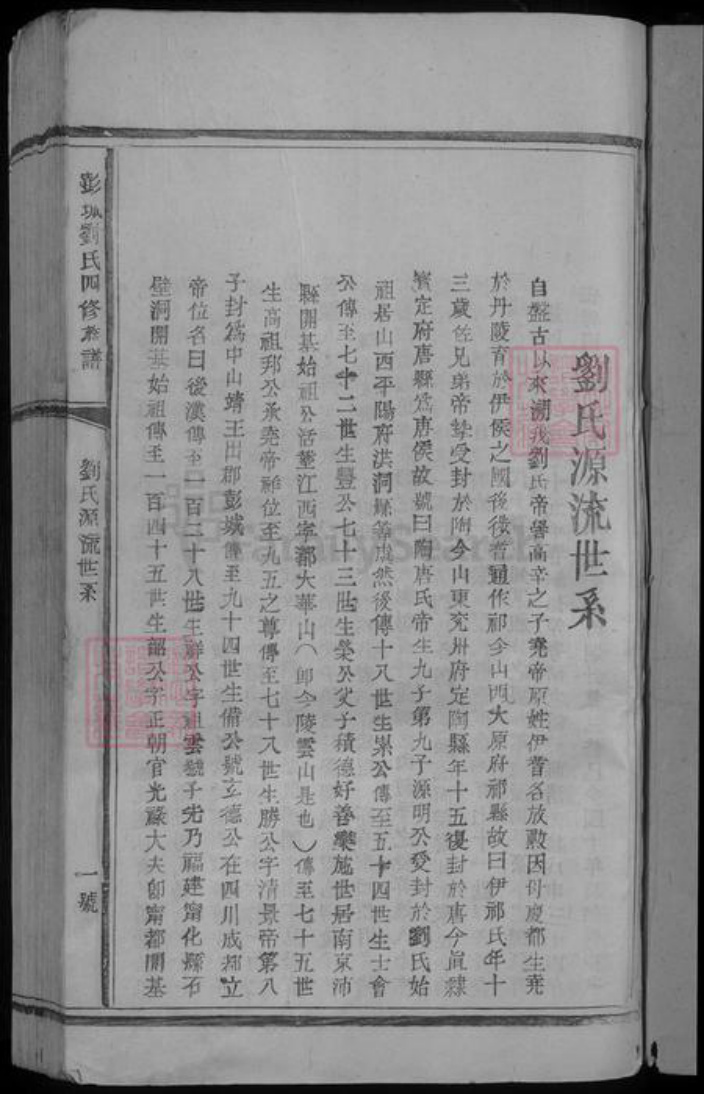 劉氏源流世系
自盤古以來溯我劉氏帝嚳高辛之子堯帝原姓伊耆名放勳因母慶都生堯
於丹陵育於伊侯之國後徙耆通作祁今山西大原府祁縣故曰伊祁氏年十
三歲佐兄弟帝摯受封於陶今山東兖州府定陶縣年十五復封於唐今眞隸
實定府唐縣爲唐侯故號曰陶唐氏帝生九子第九子源明公受封於劉氏始
祖居山西平陽府洪洞縣等處然後傳十八世生累公傳至五十四世生士會
公傳至七十二世生豐公七十三世生榮公父子積德好善樂施世居南京沛
縣開基始祖公活塟江西寧都大華山（卽今陵雲山是也）傳至七十五世
生高祖邦公承堯帝禪位至九五之尊傳至七十八世生勝公字清景帝第八
子封爲中山靖王出郡彭城傳至九十四世生備公號玄德公在四川成都立
帝位名曰後漢傳至一百二十八世生祥公字祖雲號子先乃福建甯化縣石
壁洞開基始祖傳至一百四十五世生韶公字正朝官光祿大夫卽甯都開基
彭城劉氏四修族譜
劉氏源流世系
一號
FamilySearch